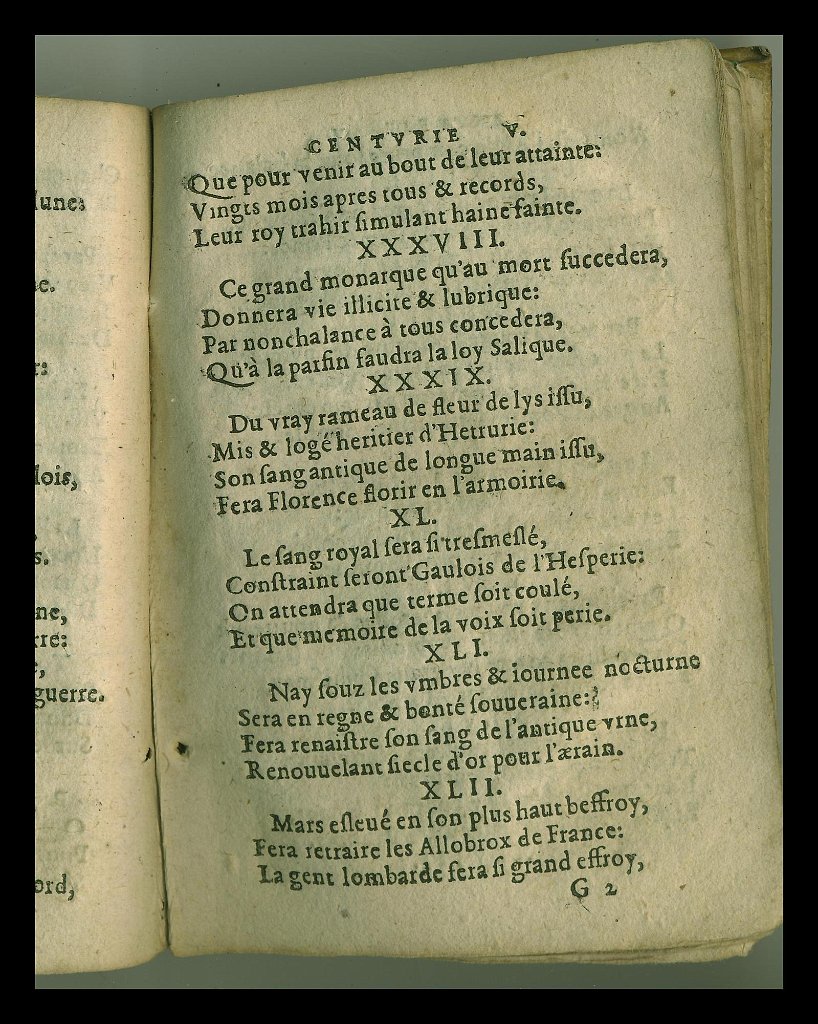 lune:
e.
r:
lois,
s.
ne,
rre:
e,
guerre.
ord,
CENTVRIE V.
Que pour venir au bout de leur attainte:
Vingts mois apres tous & records,
Leur roy trahir ſimulant haine fainte.
XXXVIII.
Ce grand monarque qu'au mort ſuccedera,
Donnera vie illicite & lubrique:
Par nonchalance à tous concedera,
Qu'à la parfin faudra la loy Salique.
XXXIX.
Du vray rameau de fleur de lys iſſu,
Mis & logé heritier d'Hetrurie:
Son ſang antique de longue main iſſu,
Fera Florence florir en l'armoirie.
XL.
Le ſang royal ſera ſi treſmeſlé,
Conſtraint ſeront Gaulois de l'Heſperie:
On attendra que terme ſoit coulé,
Et que memoire de la voix ſoit perie.
XLI.
Nay ſouz les vmbres & iournee nocturne
Sera en regne & bonté ſouueraine:
Fera renaiſtre ſon ſang de l'antique vrne,
Renouuelant ſiecle d'or pour l'ærain.
XLII.
Mars eſleué en ſon plus haut beffroy,
Fera retraire les Allobrox de France:
La gent lombarde fera ſi grand effroy,
G 2